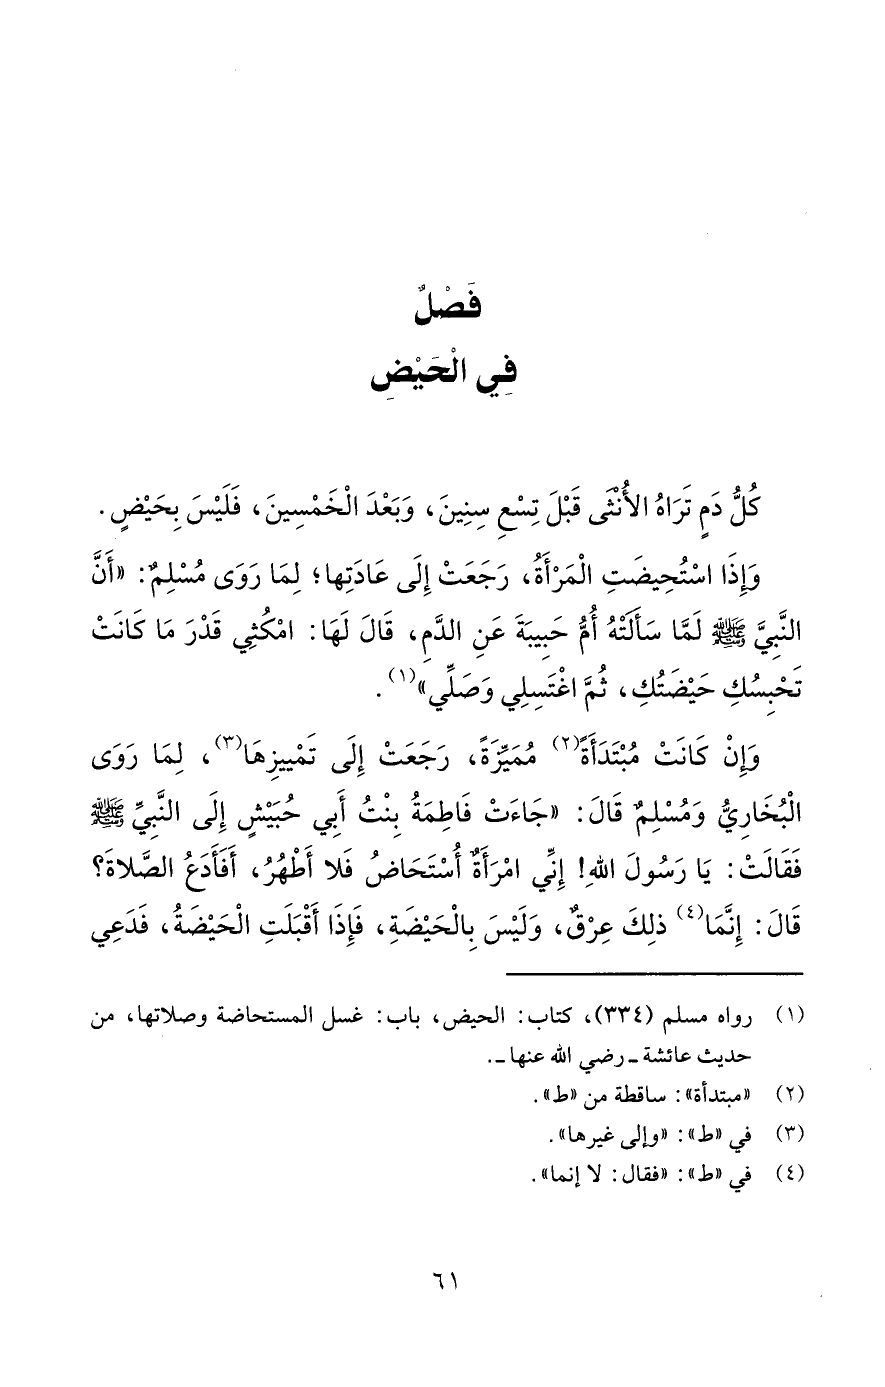 فَصْلٌ
فِي الْحَيْضِ
كُلُّ دَمٍ تَرَاهُ الأُنْثَى قَبْلَ تِسْعِ سِنِينَ، وَبَعْدَ الْخَمْسِينَ، فَلَيْسَ بِحَيْضٍ.
وَإِذَا اسْتُحِيضَتِ الْمَرْأَةُ، رَجَعَتْ إِلَى عَادَتِها؛ لِمَا رَوَى مُسْلِمٌ: «أَنَّ
النَّبِيَّ ﷺ لَمَّا سَأَلَتْهُ أُمُّ حَبِيبَةَ عَنِ الدَّمِ، قَالَ لَهَا: امْكُثِي قَدْرَ مَا كَانَتْ
تَحْبِسُكِ حَيْضَتُكِ، ثُمَّ اغْتَسِلِي وَصَلِّي»(١).
وَإِنْ كَانَتْ مُبْتَدَأَةً(٢) مُمَيِّزَةً، رَجَعَتْ إِلَى تَمْيِيزِهَا(٣)، لِمَا رَوَى
الْبُخَارِيُّ وَمُسْلِمٌ قَالَ: «جَاءَتْ فَاطِمَةُ بِنْتُ أَبِي حُبَيْشٍ إِلَى النَّبِيِّ ﷺ
فَقَالَتْ: يَا رَسُولَ اللهِ! إِنِّي امْرَأَةٌ أُسْتَحَاضُ فَلا أَطْهُرُ، أَفَأَدَعُ الصَّلاةَ؟
قَالَ: إِنَّمَا(٤) ذلِكَ عِرْقٌ، وَلَيْسَ بِالْحَيْضَةِ، فَإِذَا أَقْبَلَتِ الْحَيْضَةُ، فَدَعِي
(١) رواه مسلم (٣٣٤)، كتاب: الحيض، باب: غسل المستحاضة وصلاتها، من
حديث عائشة ـ رضي الله عنها ـ.
(٢) «مبتدأة»: ساقطة من «ط».
(٣) في «ط»: «وإلى غيرها».
(٤) في «ط»: «فقال: لا إنما».
٦١